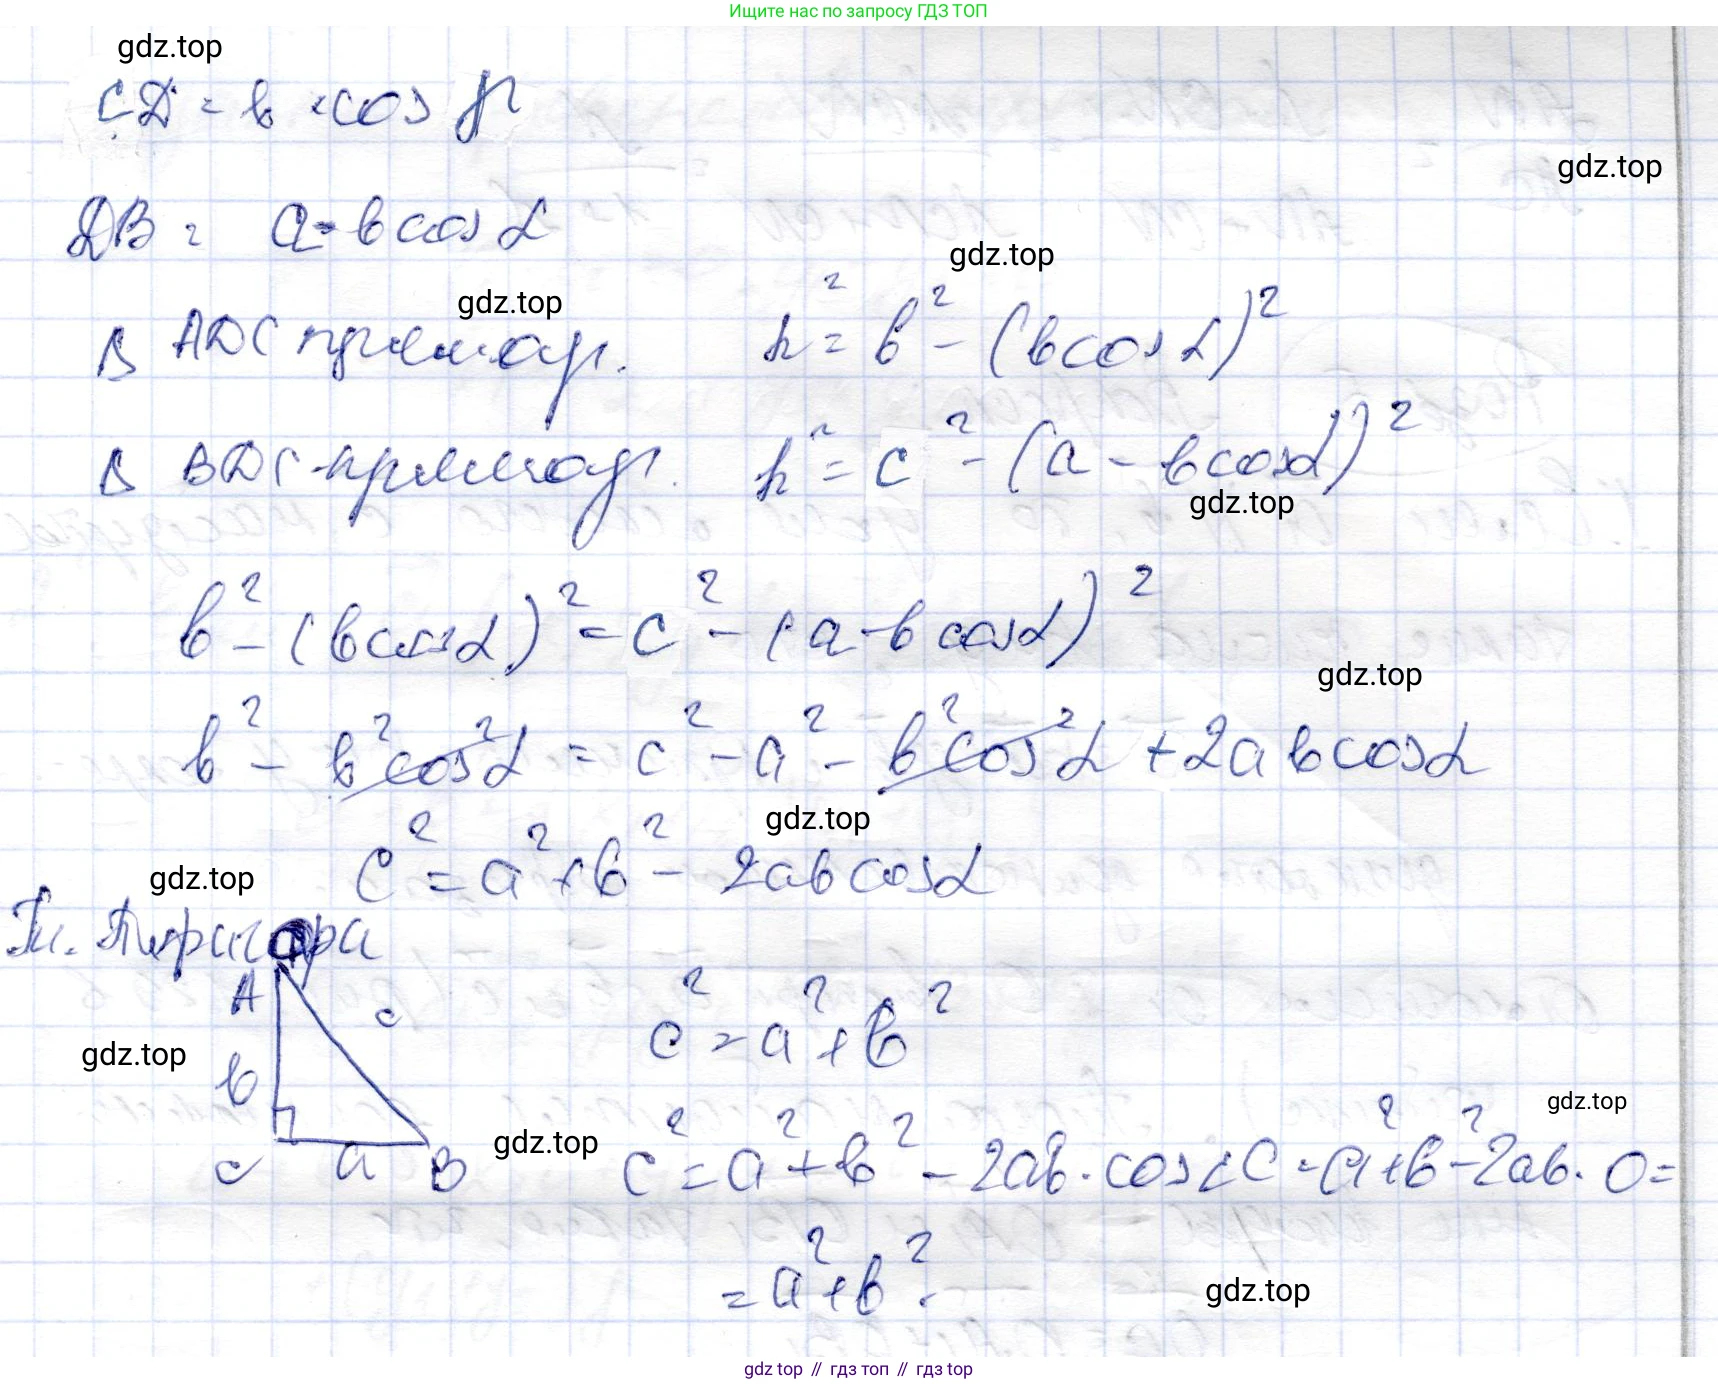 Ищите нас по запросу ГДЗ ТОП
gdz.top
CD = b · cos
gdz.top
DB = a - b cos α
gdz.top
gdz.top
В ADC прямоуг. h² = b² - (b cos α)²
В BDC - прямоуг. h² = c² - (a - b cos α)²
gdz.top
b² - (b cos α)² = c² - (a - b cos α)²
gdz.top
b² - b² cos² α = c² - a² - b² cos² α + 2ab cos α
gdz.top
c² = a² + b² - 2ab cos α
gdz.top
Т. Пифагора
A c c² = a² + b²
gdz.top
b
gdz.top
gdz.top
C a B c² = a² + b² - 2ab · cos ∠C = a² + b² - 2ab · 0 =
= a² + b².
gdz.top
gdz top // гдз топ // гдз top